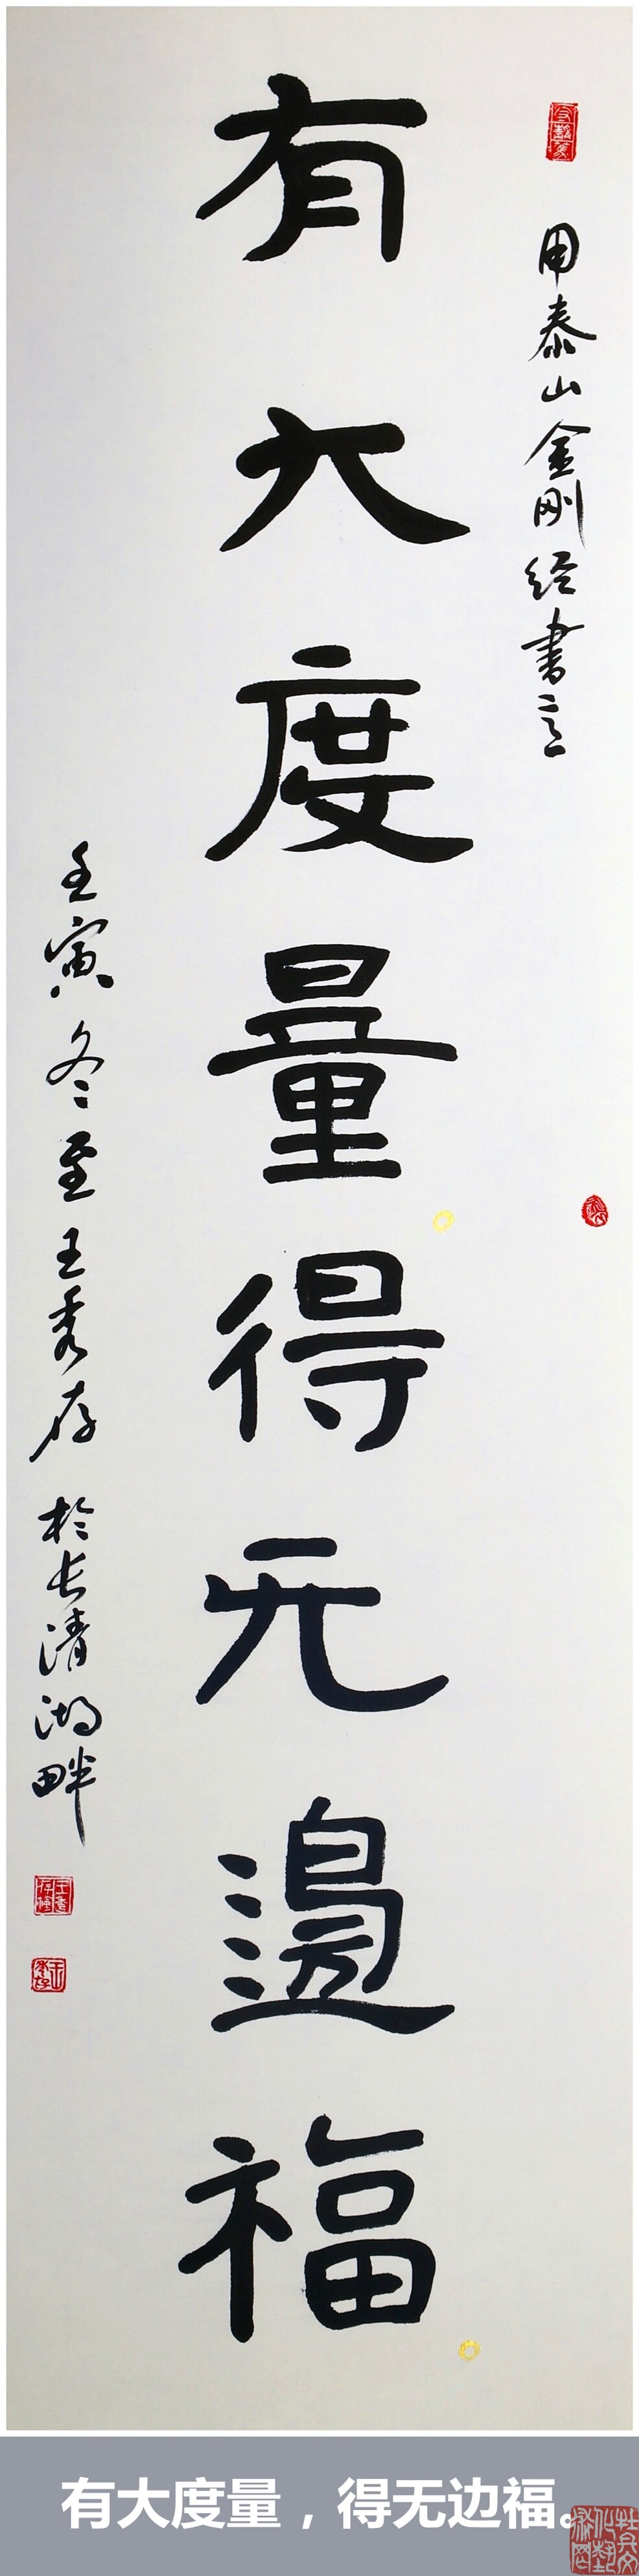 用泰山金刚经书意
有大度量得无邊福
壬寅冬至王秀存於长清湖畔
有大度量，得无边福。